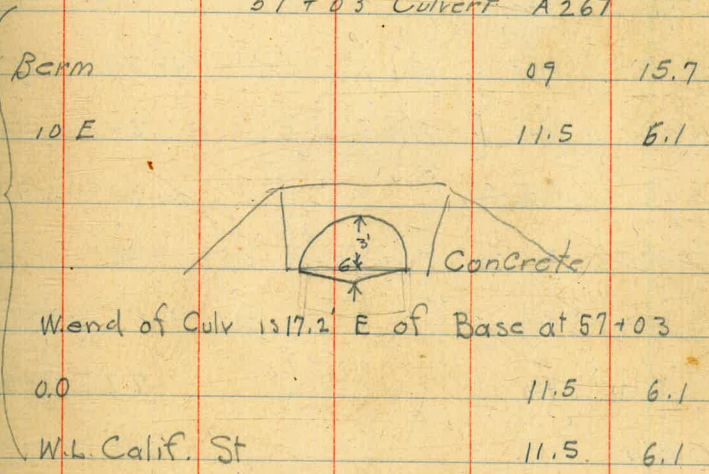 57 + 03 Culvert A 261
Berm 09 15.7
10 E 11.5 6.1
3'
6"
Concrete
W.end of Culv is 17.2' E of Base at 57+03
0.0 11.5 6.1
W.L. Calif. St 11.5 6.1